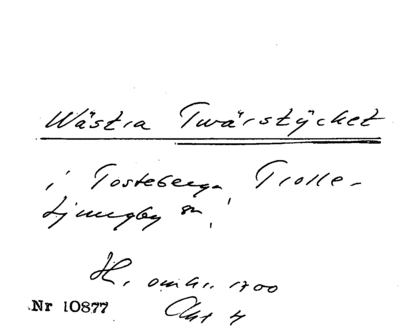 Wästra Twärstÿcket
i Tosteberga, Trolle-
Ljungby sn,
H. omkr. 1700
Nr 10877 Akt 4